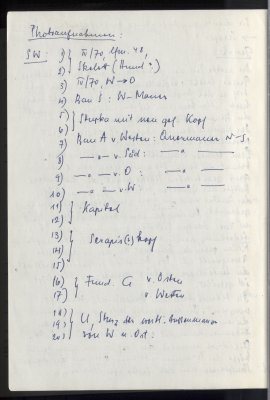 Photoaufnahmen:
SW: 1) IV/70, Ufm. 48,
2) Skelet (Hund?)
3) IV/70, W→O
4) Bau S: W-Mauer
5)
6) Skupka mit neu gef. Kopf
7) Bau A v Westen: Quermauer N-S.
8) —"— v. Süd: —"— ——
9) —"— v. O: —"— ——
10) —"— v. W: —"— ——
11)
12) Kapitel
13)
14) Serapis(?)kopf
15)
16) Fund. G v. Osten
17) v Westen
18)
19) U, Sturz der westl.
20) von W u. Ost: